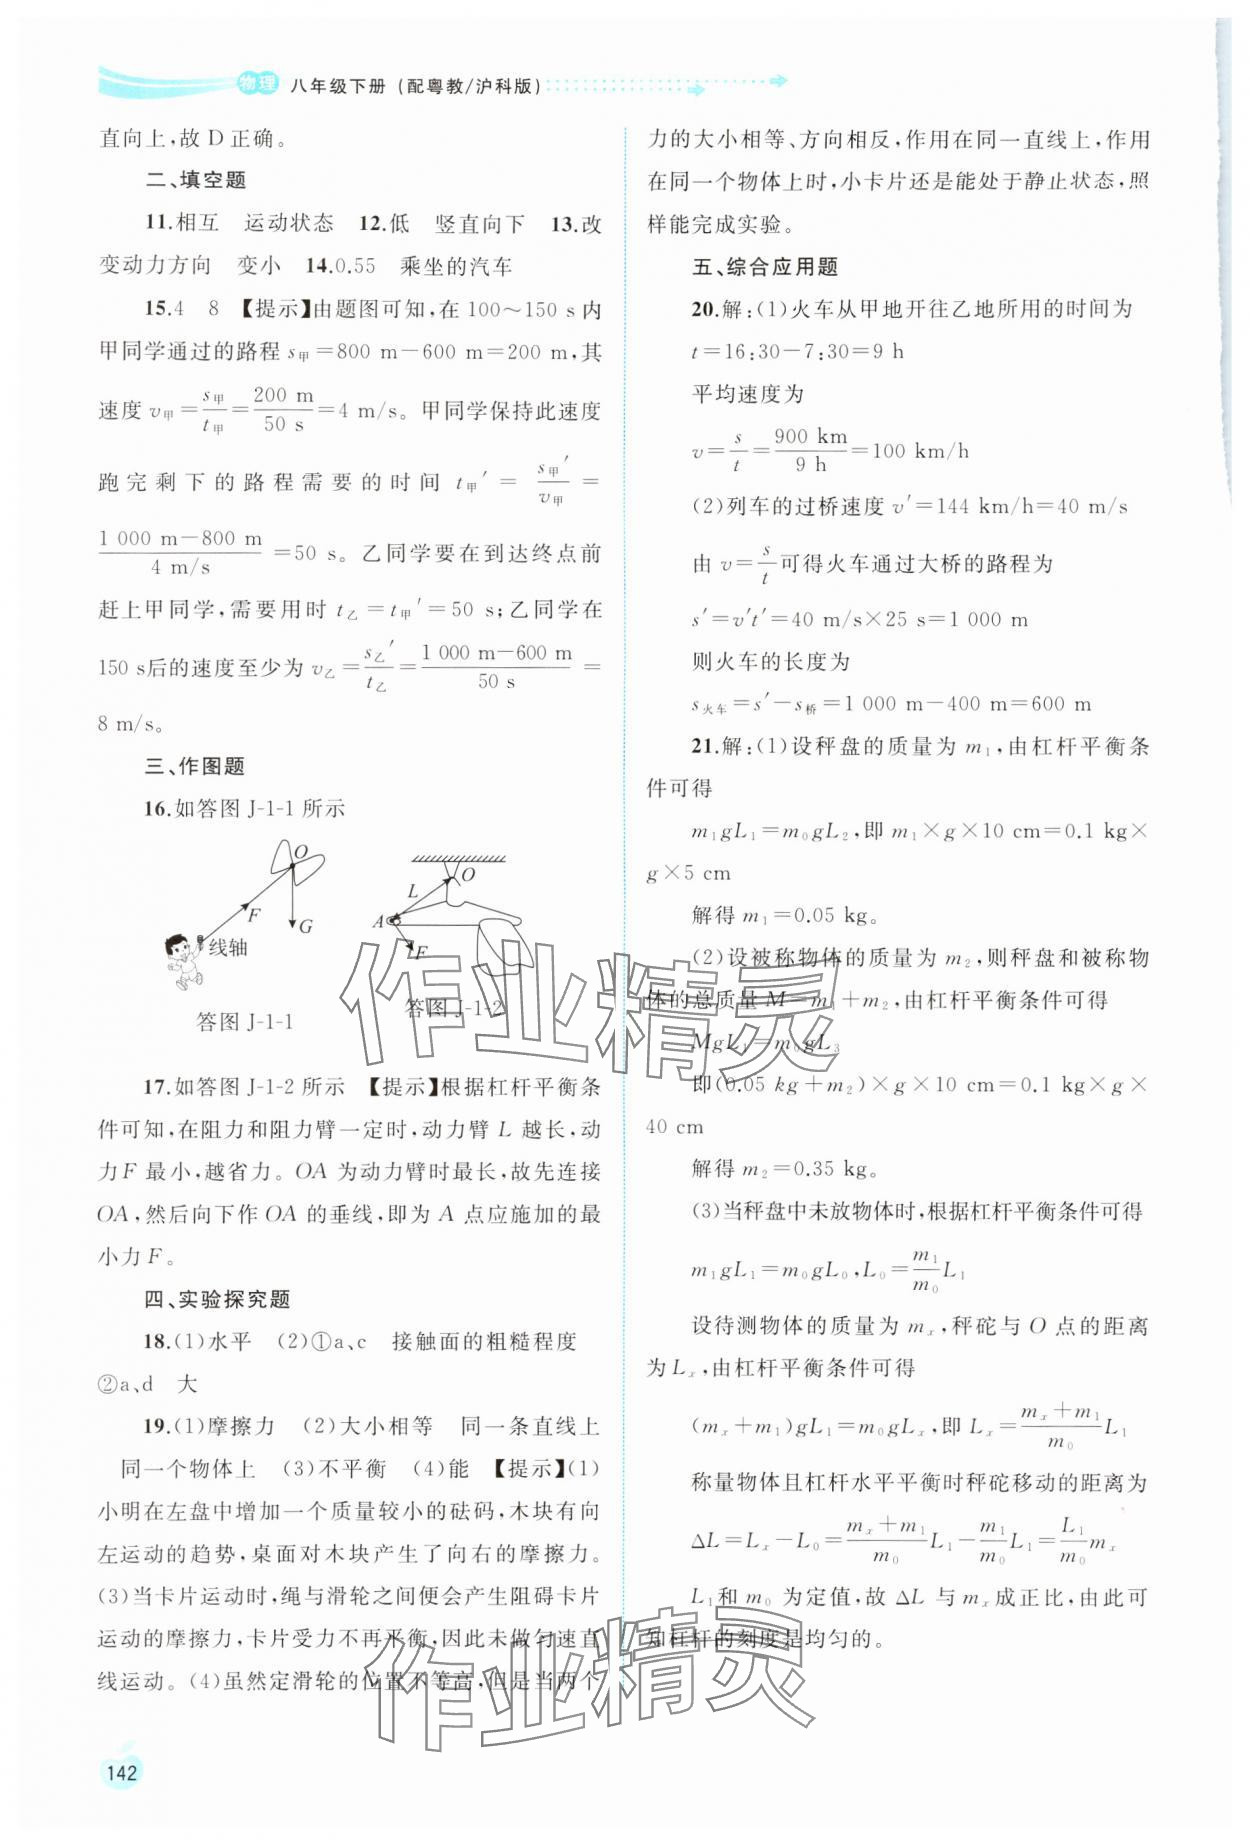 物理 八年级下册(配粤教/沪科版)
直向上,故 D 正确。
二、填空题
11.相互 运动状态 12.低 竖直向下 13.改
变动力方向 变小 14.0.55 乘坐的汽车
15.4 8 【提示】由题图可知,在 100～150 s 内
甲同学通过的路程 s甲=800 m-600 m=200 m,其
速度 v甲=s甲/t甲=200 m/50 s=4 m/s。甲同学保持此速度
跑完剩下的路程需要的时间 t甲′=s甲′/v甲=
(1 000 m-800 m)/(4 m/s)=50 s。乙同学要在到达终点前
赶上甲同学,需要用时 t乙=t甲′=50 s;乙同学在
150 s后的速度至少为 v乙=s乙′/t乙=(1 000 m-600 m)/50 s=
8 m/s。
三、作图题
16.如答图 J-1-1 所示
O
F
G
线轴
答图 J-1-1
L
O
A
F
答图 J-1-2
17.如答图 J-1-2 所示 【提示】根据杠杆平衡条
件可知,在阻力和阻力臂一定时,动力臂 L 越长,动
力F 最小,越省力。OA 为动力臂时最长,故先连接
OA,然后向下作 OA 的垂线,即为 A 点应施加的最
小力 F。
四、实验探究题
18.(1)水平 (2)①a、c 接触面的粗糙程度
②a、d 大
19.(1)摩擦力 (2)大小相等 同一条直线上
同一个物体上 (3)不平衡 (4)能 【提示】(1)
小明在左盘中增加一个质量较小的砝码,木块有向
左运动的趋势,桌面对木块产生了向右的摩擦力。
(3)当卡片运动时,绳与滑轮之间便会产生阻碍卡片
运动的摩擦力,卡片受力不再平衡,因此未做匀速直
线运动。(4)虽然定滑轮的位置不等高,但是当两个
力的大小相等、方向相反,作用在同一直线上,作用
在同一个物体上时,小卡片还是能处于静止状态,照
样能完成实验。
五、综合应用题
20.解:(1)火车从甲地开往乙地所用的时间为
t=16:30-7:30=9 h
平均速度为
v=s/t=900 km/9 h=100 km/h
(2)列车的过桥速度 v′=144 km/h=40 m/s
由 v=s/t可得火车通过大桥的路程为
s′=v′t′=40 m/s×25 s=1 000 m
则火车的长度为
s火车=s′-s桥=1 000 m-400 m=600 m
21.解:(1)设秤盘的质量为 m₁,由杠杆平衡条
件可得
m₁gL₁=m₀gL₂,即 m₁×g×10 cm=0.1 kg×
g×5 cm
解得 m₁=0.05 kg。
(2)设被称物体的质量为 m₂,则秤盘和被称物
体的总质量 M=m₁+m₂,由杠杆平衡条件可得
MgL₁=m₀gL₃
即(0.05 kg+m₂)×g×10 cm=0.1 kg×g×
40 cm
解得 m₂=0.35 kg。
(3)当秤盘中未放物体时,根据杠杆平衡条件可得
m₁gL₁=m₀gL₀,L₀=m₁/m₀ L₁
设待测物体的质量为 mₓ,秤砣与 O 点的距离
为 Lₓ,由杠杆平衡条件可得
(mₓ+m₁)gL₁=m₀gLₓ,即 Lₓ=(mₓ+m₁)/m₀ L₁
称量物体且杠杆水平平衡时秤砣移动的距离为
ΔL=Lₓ-L₀=(mₓ+m₁)/m₀ L₁-m₁/m₀ L₁=L₁/m₀ mₓ
L₁和 m₀ 为定值,故 ΔL 与 mₓ成正比,由此可
知杠杆的刻度是均匀的。
作业精灵
作业精灵
142